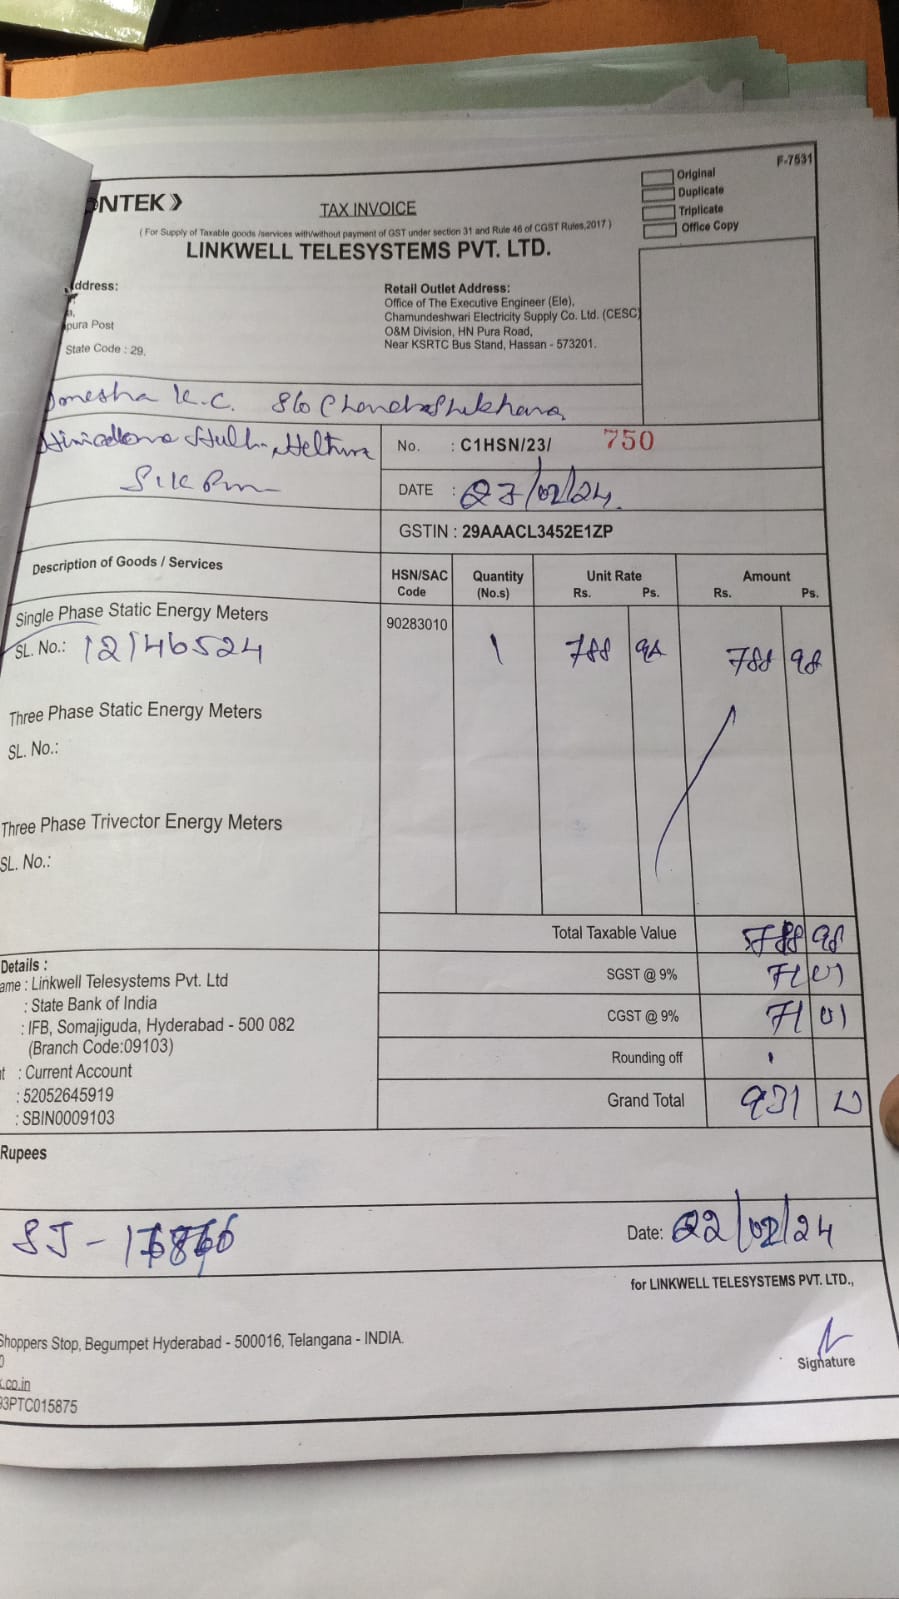 NTEK
TAX INVOICE
F-7531
Original
Duplicate
Triplicate
Office Copy
( For Supply of Taxable goods /services with/without payment of GST under section 31 and Rule 46 of CGST Rules,2017 )
LINKWELL TELESYSTEMS PVT. LTD.
ddress:
pura Post
State Code : 29.
Retail Outlet Address:
Office of The Executive Engineer (Ele),
Chamundeshwari Electricity Supply Co. Ltd. (CESC)
O&M Division, HN Pura Road,
Near KSRTC Bus Stand, Hassan - 573201.
K.C. S/o Chandrashekhara
No. : C1HSN/23/ 750
DATE : 27/02/24
GSTIN : 29AAACL3452E1ZP
Description of Goods / Services HSN/SAC Code Quantity (No.s) Unit Rate Rs. Ps. Amount Rs. Ps.
Single Phase Static Energy Meters 90283010
SL. No.: 12146524 1 788 98 788 98
Three Phase Static Energy Meters
SL. No.:
Three Phase Trivector Energy Meters
SL. No.:
Total Taxable Value 788 98
SGST @ 9% 71 01
CGST @ 9% 71 01
Rounding off
Grand Total 931
Details :
ame : Linkwell Telesystems Pvt. Ltd
: State Bank of India
: IFB, Somajiguda, Hyderabad - 500 082
(Branch Code:09103)
t : Current Account
: 52052645919
: SBIN0009103
Rupees
SJ -
Date: 22/02/24
for LINKWELL TELESYSTEMS PVT. LTD.,
Signature
Shoppers Stop, Begumpet Hyderabad - 500016, Telangana - INDIA.
.co.in
93PTC015875